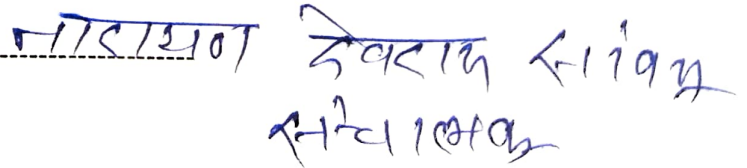 नारायण देवराव सावंत
संचालक